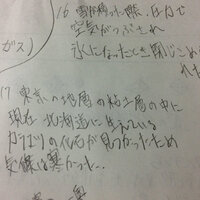 ガス)
16 雪が積った際、圧力で
空気がつぶされ
氷になったとき閉じこめ
られた
17 東京の地層の粘土層の中に
現在 北海道に生えている
の化石が見つかったため
気候は寒かった…